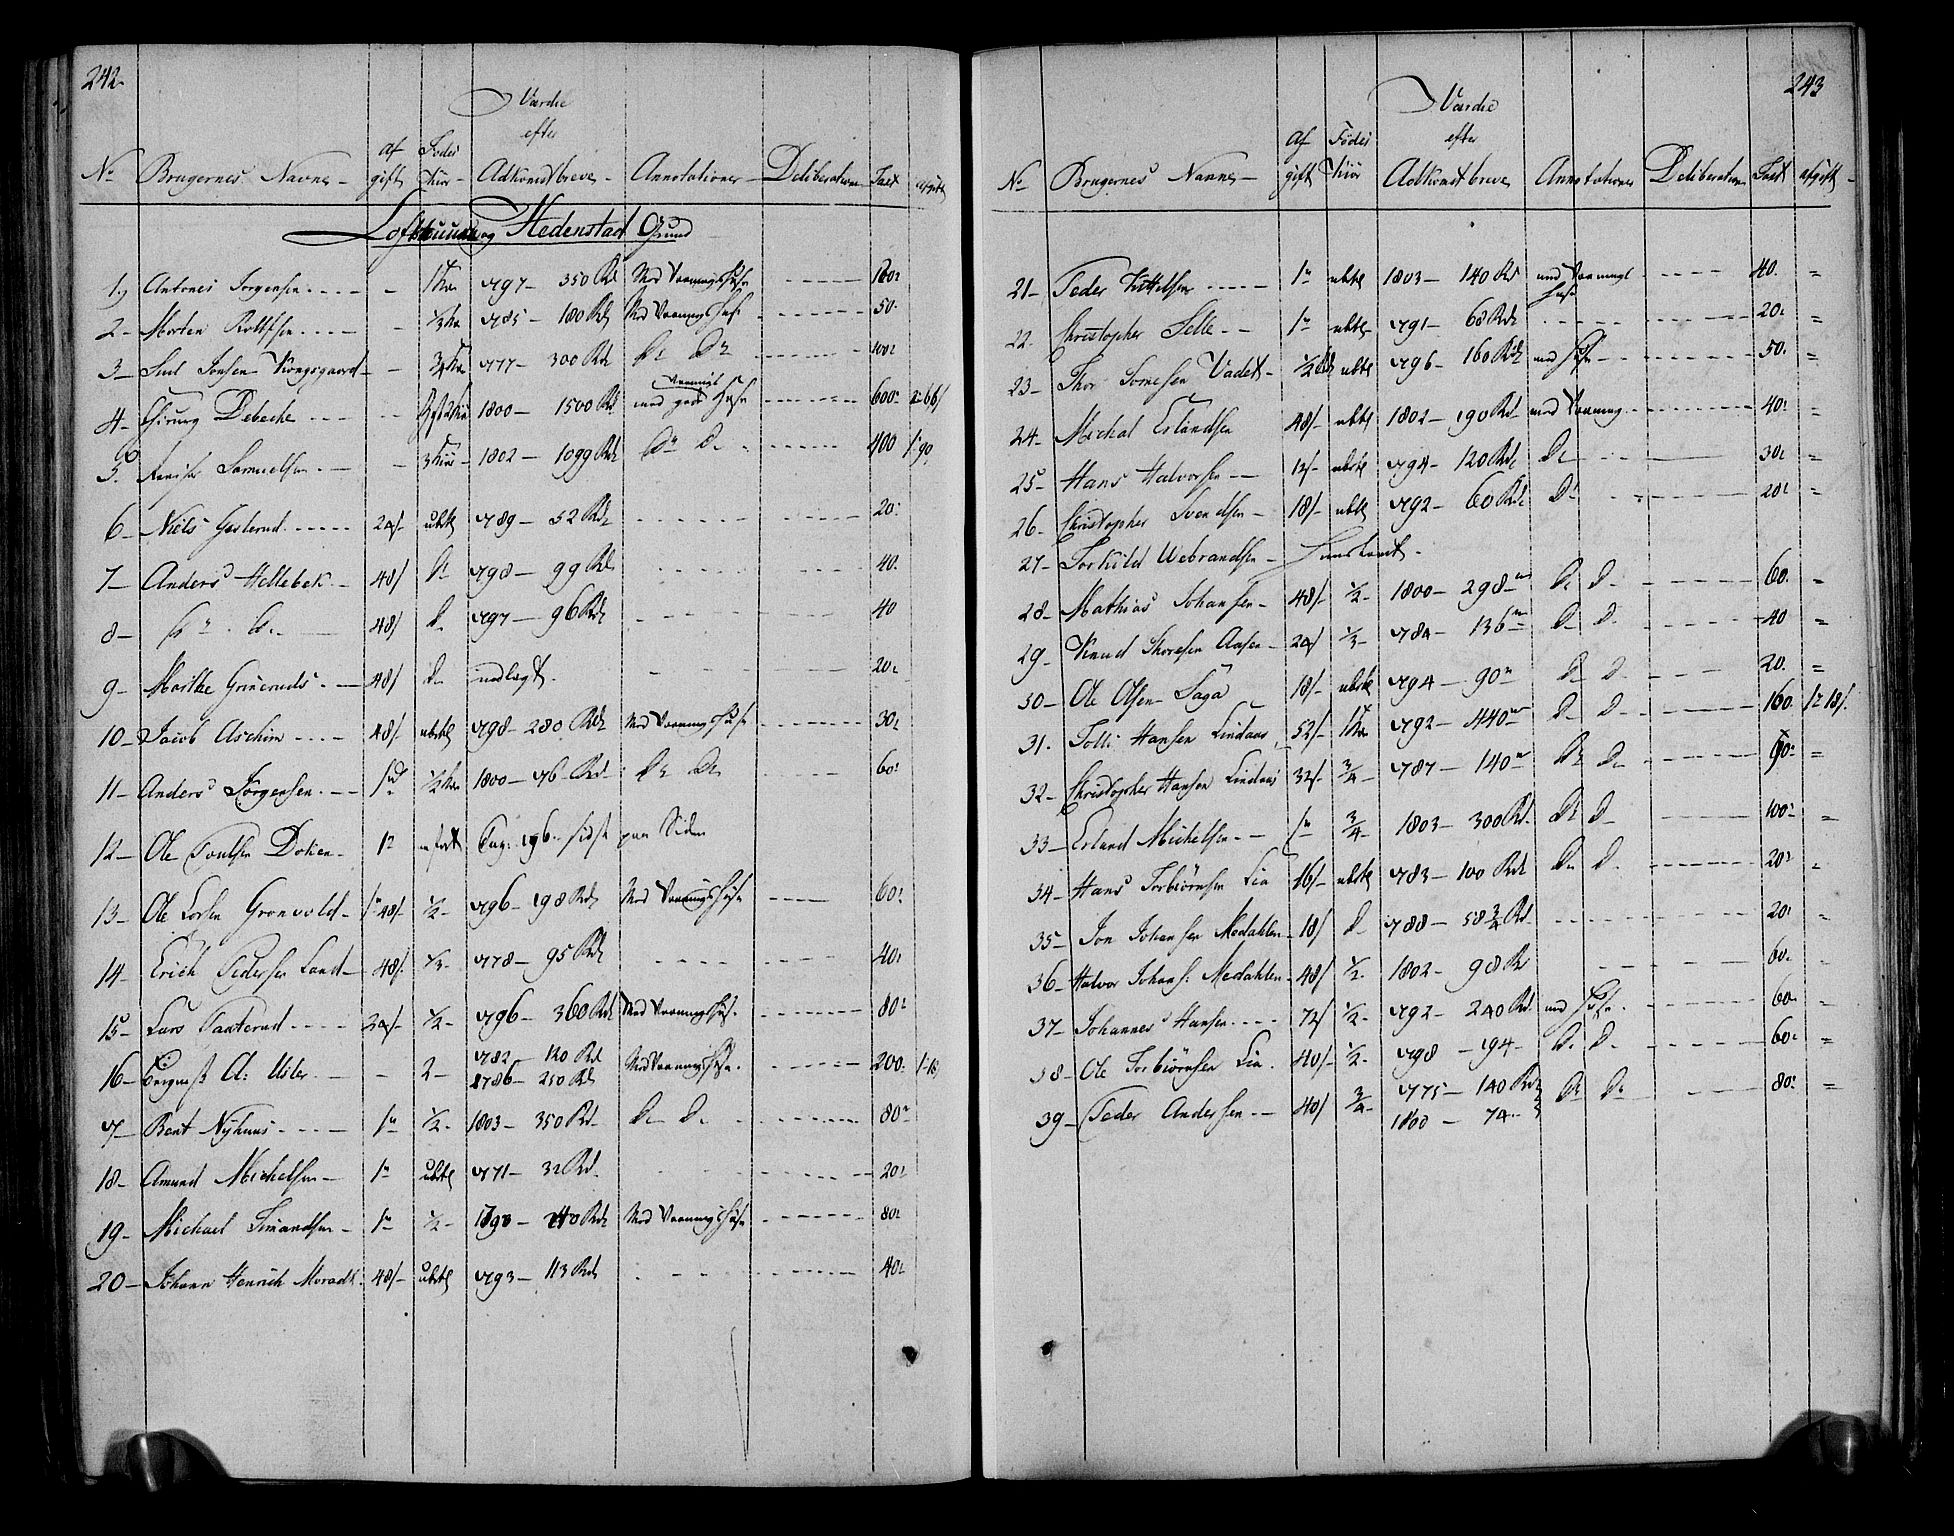 242.
Værdie
efter
No Brugernes Navne – af gift Födes Kiör – Adkomstbreve – Annotationer – Deliberation Taxt afgift
Loftstuunde og Hedenstad Grund
1. Antoni Jörgensen – 1 Koe 1797 – 350 Rd Med Vaaningshuse 100
2 – Morten Rolfsen – ½ Koe 1785 – 180 Rd Med Vaaningshuse 50
3 – Jonsen Kongsgaard – ¾ Koe 1777 – 300 Rd Do Do 100
4 – Chirurg Debeche 1800 – 1500 Rd med gode Vaanings Huse 600 2 66/
5. Samuelsen – 3 Kiör – 1802 – 1099 Rd Do Do 400 1 90
6 – Niels 24/ ubete 1789 – 52 Rd 20
7 – Anders Hellebek – 48/ Do 1798 – 99 Rd 40
8 – Do Do 48/ Do 1797 – 96 Rd 40
9 – Marthe Gruerud – 48/ Do nedlagt. 20
10 – Jacob Aschim 48/ ubete 1798 – 280 Rd Med Vaaningshuse 30
11 – Anders Jörgensen 1 ½ Koe 1800 – 76 Rd Do Do 60
12 – Ole Poulsen Doken – 1 196 – sidste paa Siden
13 – Ole Larsen Gronvold – 1 48/ ½ – 1796 – 198 Rd Med Vaaningshuse 60
14 – Erich Pedersen Land – 48/ ⅓ – 1778 – 95 Rd 40
15 – Lars Taxterud 24/ ½ – 1796 – 360 Rd Med Vaaningshuse 80
16 – A: Usler – 2 – 1782 – 120 Rd Med Vaaningshuse 200
1786 – 250 Rd
17 – Bent Nyhuus 1 ½ – 1803 – 350 Rd Do Do 80
18 – Amund Michelsen – 1 ubete 1771 – 32 Rd 20
19 – Michael Simandsen – 1 ½ – 1790 – 240 Rd Med Vaaningshuse 80
20 – Johann Henrich Moradt 48/ ubete 1793 – 113 Rd 40
243
Værdie
efter
No Brugernes Navne – af gift Födes Kiör Adkomstbreve Annotationer Deliberation Taxt afgift –
21 – Peder Kittelsen 1 ubete 1803 – 140 Rd med Vaanings Huse 40
22. Christopher Selle 1 ubete 1791 – 68 Rd 20
23 – Thor Vadet – ½ Rd ubete 1796 – 160 Rd med Huse 50
24 – Michal Erlandsen 48/ ubete 1802 – 190 Rd med Vaaning 40
25 – Hans Halvorsen 12/ ubete 1794 – 120 Rd Do 30
26 – Christopher Svendsen – 18/ ubete 1792 – 60 Rd Do 20
27 – Torkild Webrandsen –
28 – Mathias Johansen – 48/ ½ – 1800 – 298 Do Do 60
29 – Knud Thoresen Aasen – 24/ ⅓ – 1784 – 136 Do Do 40
30 – Ole Olsen Saga 18/ ubete 1794 – 90 Do Do 20
31. Tolli Hansen Lindaas 52/ 1 Koe 1792 – 440 Do Do 160 1 18/
32 – Christopher Hansen Lindaas 32/ ¾ – 1787 – 140 Do Do 90
33 – Erland Michelsen – 1 ¾ – 1803 – 300 Rd Do Do 100
34 – Hans Torbiörnsen Lia 16/ ubete 1783 – 100 Rd Do Do 20
35 – Jon Johansen Medahlen 18/ Do 1788 – 58¾ Rd 20
36 – Halvor Johans: Medahlen – 48/ ½ – 1802 – 98 Rd 60
37 – Johannes Hansen 72/ ½ – 1792 – 240 Rd med Huse 60
38 – Ole Torbiörnsen Lia. 40/ ½ – 1798 – 194 – Do Do 60
39 – Peder Andersen – 40/ ¾ – 1775 – 140 Rd Do Do 80
1800 – 74